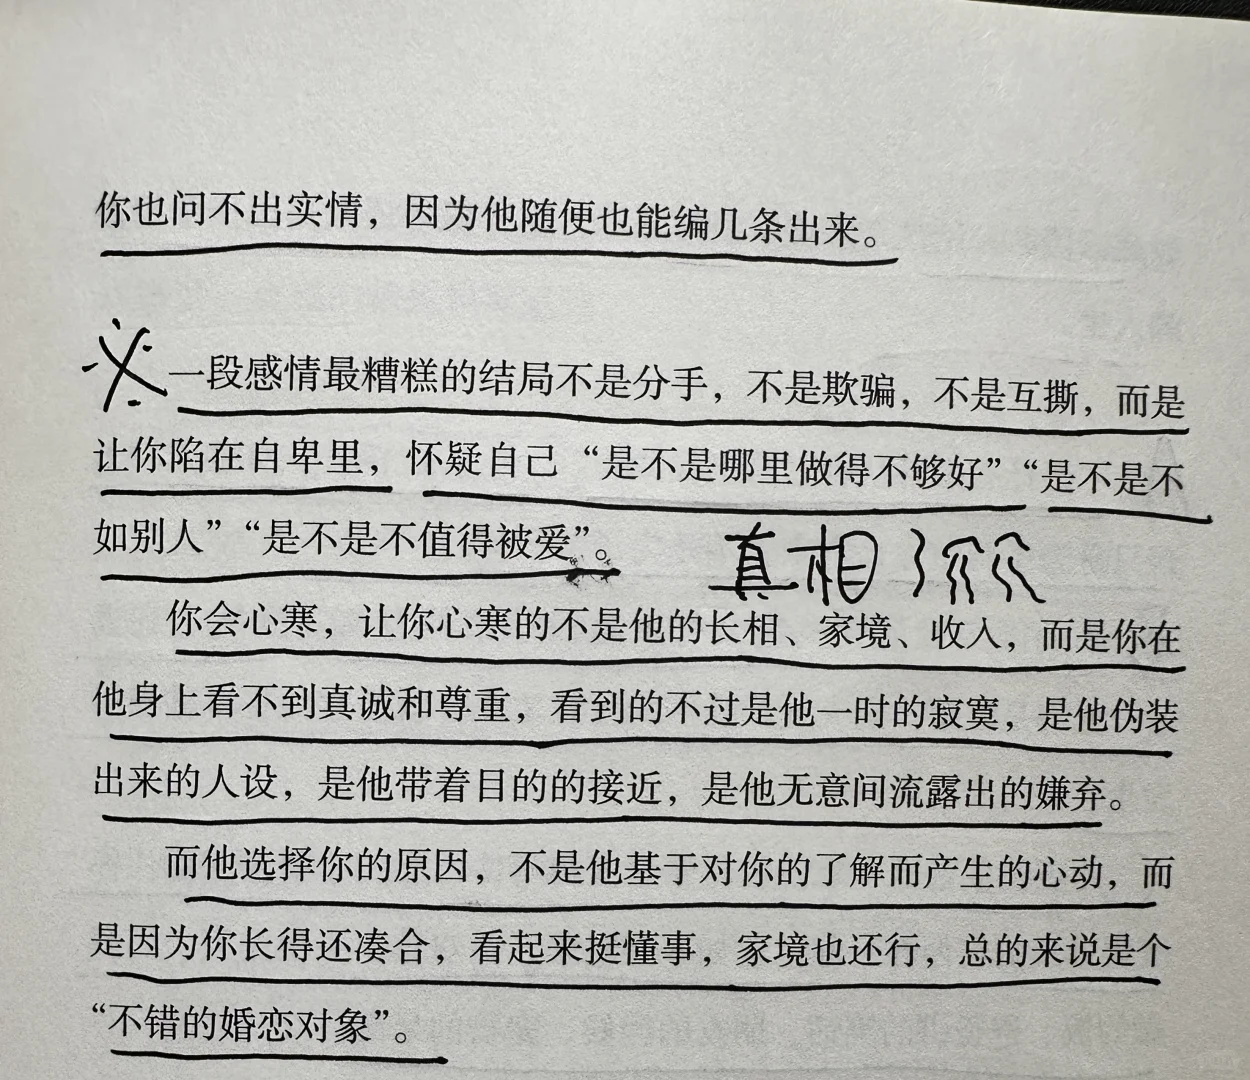 你也问不出实情，因为他随便也能编几条出来。
一段感情最糟糕的结局不是分手，不是欺骗，不是互撕，而是
让你陷在自卑里，怀疑自己“是不是哪里做得不够好”“是不是不
如别人”“是不是不值得被爱”。
真相了
你会心寒，让你心寒的不是他的长相、家境、收入，而是你在
他身上看不到真诚和尊重，看到的不过是他一时的寂寞，是他伪装
出来的人设，是他带着目的的接近，是他无意间流露出的嫌弃。
而他选择你的原因，不是他基于对你的了解而产生的心动，而
是因为你长得还凑合，看起来挺懂事，家境也还行，总的来说是个
“不错的婚恋对象”。